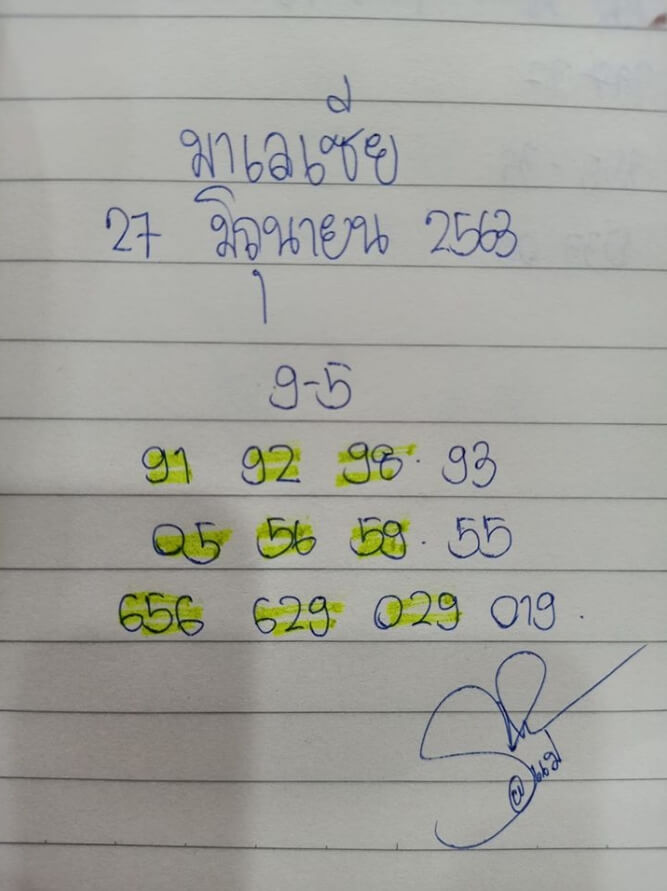 มาเลเซีย
27 มิถุนายน 2563
9-5
91 92 98. 93
05 56 59. 55
656 629 029 019.